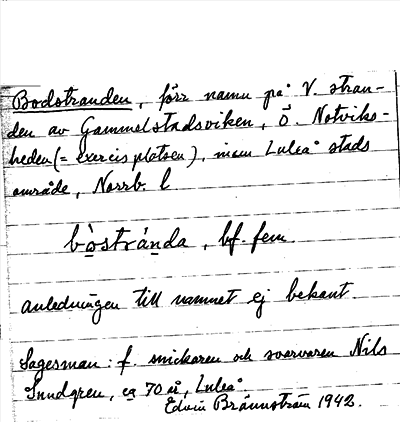 Bodstranden, förr namn på V. stran-
den av Gammelstadsviken, ö. Notviks-
heden (= exercisplatsen), inom Luleå stads
område, Norrb. l
bòstránda, bf. fem.
anledningen till namnet ej bekant.
Sagesman: f. snickaren och svarvaren Nils
Sundgren, ca 70 år, Luleå.
Edvin Brännström 1942.